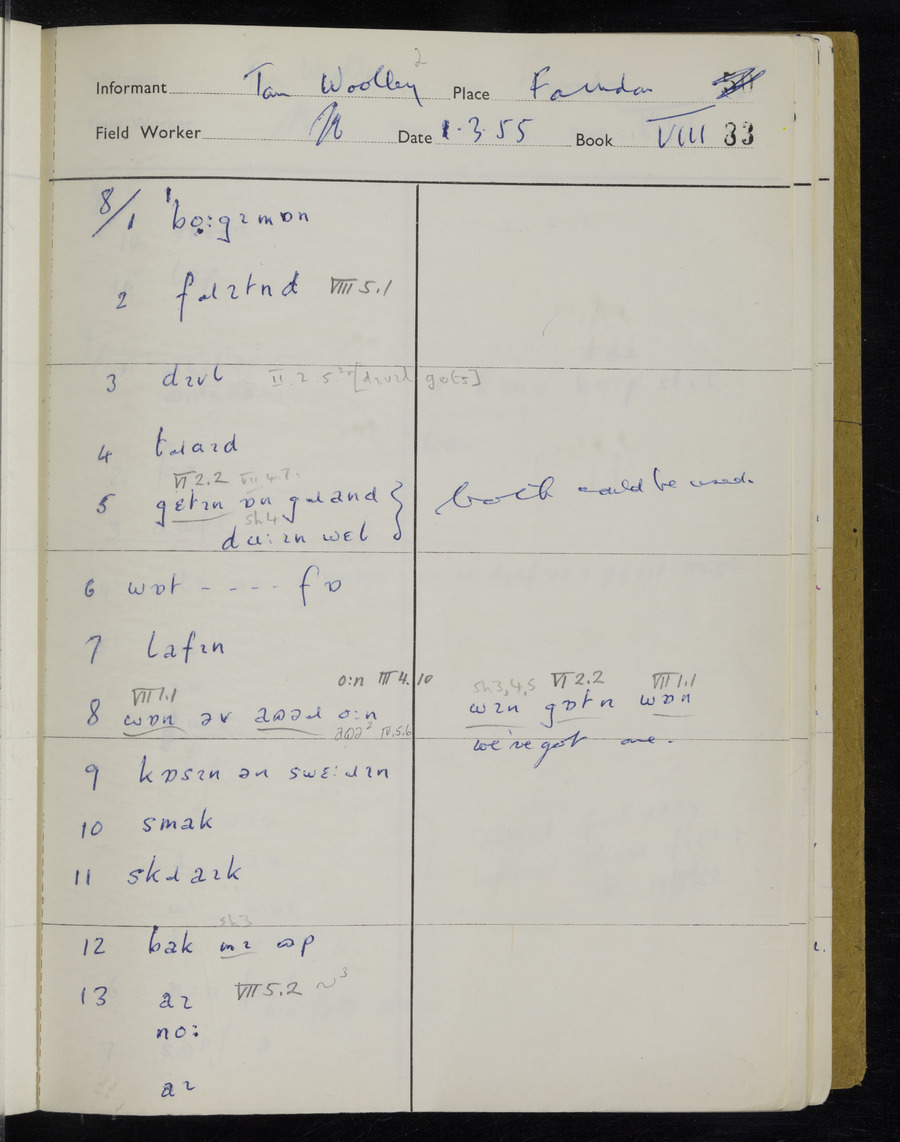 Informant Tom Woolley 2 Place Farndon
Field Worker Date 1.3.55 Book VIII 33
8/1 ˈbo̜ːgɪmɒn
2 fɹɪtnd VIII 5.1
3 dɪvl II.2 5. [dɪvɪl gots]
4 tɹaɪd
5 VI 2.2 VII 4.7.
gɛtɪn ɒn gɹand } both could be used.
sh4
dɷːɪn wɛl
6 wɒt - - - - fɒ
7 lafɪn
8 VII 1.1 oːn III 4.10
wɒn əv ðəɹ oːn
IV.5.6
sh3,4,5 VI 2.2 VII 1.1
wɪn gɒtn wɒn
we've got one.
9 kɒsɪn ən swɛːɹɪn
10 smak
11 skɹaɪk
12 sh3
bak mɪ ɷp
13 aɪ VII 5.2 ~3
noː
aɪ